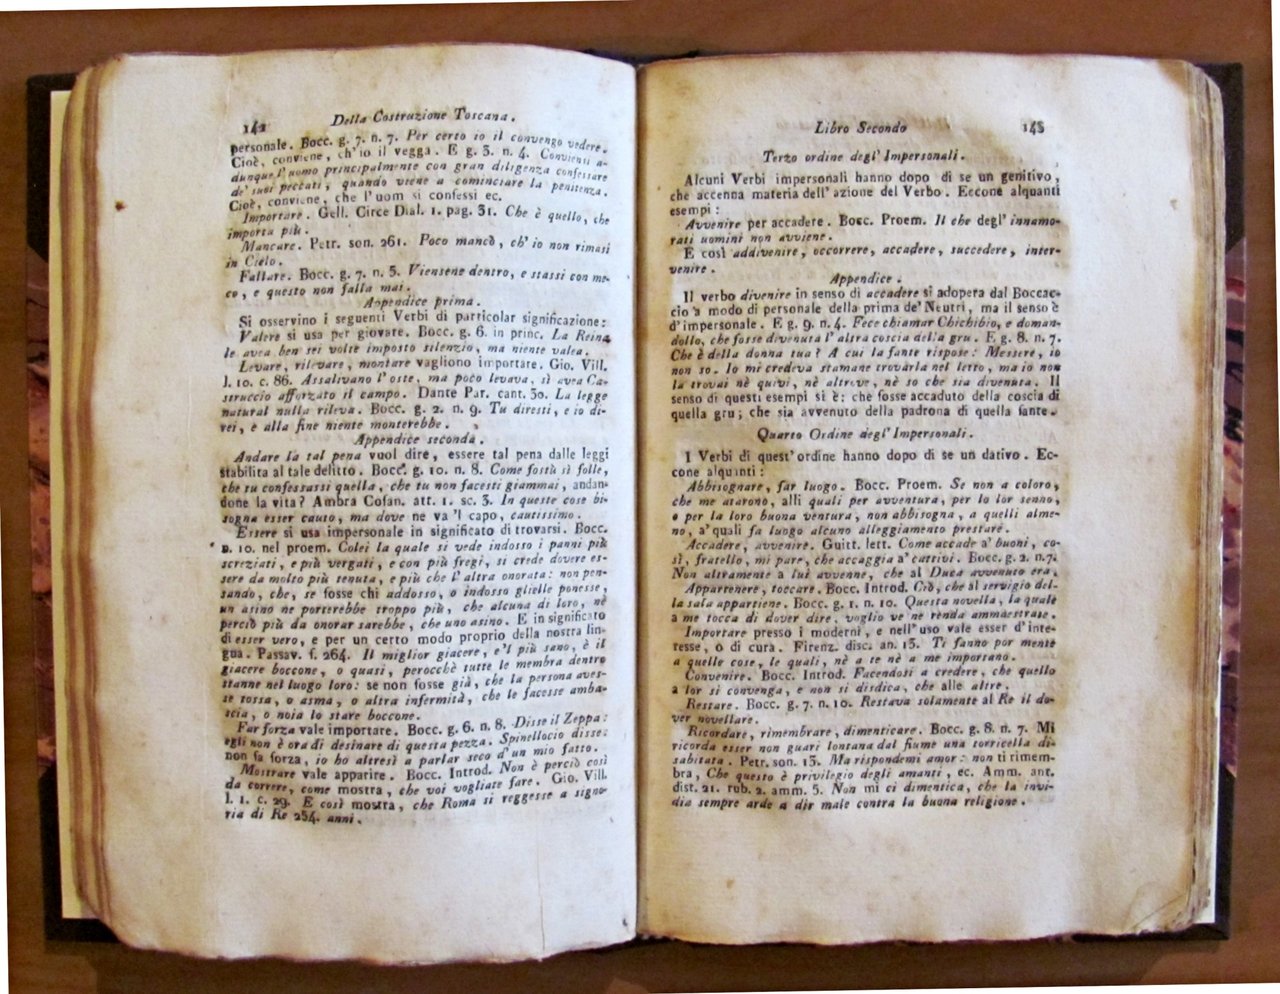 142
Della Costruzione Toscana.
personale. Bocc. g. 7. n. 7. Per certo io il convengo vedere.
Cioè, conviene, ch'io il vegga. E g. 3. n. 4. Convienti a-
dunque l'uomo principalmente con gran diligenza confessare
de' suoi peccati, quando viene a cominciare la penitenza.
Cioè, conviene, che l'uom si confessi ec.
Importare. Gell. Circe Dial. 1. pag. 31. Che è quello, che
importa più.
Mancare. Petr. son. 261. Poco mancò, ch'io non rimasi
in Cielo.
Fallare. Bocc. g. 7. n. 5. Viensene dentro, e stassi con me-
co, e questo non falla mai.
Appendice prima.
Si osservino i seguenti Verbi di particolar significazione:
Valere si usa per giovare. Bocc. g. 6. in princ. La Reina
le avea ben sei volte imposto silenzio, ma niente valea.
Levare, rilevare, montare vagliono importare. Gio. Vill.
l. 10. c. 86. Assalivano l'oste, ma poco levava, sì avea Ca-
struccio afforzato il campo. Dante Par. cant. 30. La legge
natural nulla rileva. Bocc. g. 2. n. 9. Tu diresti, e io di-
rei, e alla fine niente monterebbe.
Appendice seconda.
Andare la tal pena vuol dire, essere tal pena dalle leggi
stabilita al tale delitto. Bocc. g. 10. n. 8. Come fostù sì folle,
che tu confessassi quella, che tu non facesti giammai, andan-
done la vita? Ambra Cofan. att. 1. sc. 3. In queste cose bi-
sogna esser cauto, ma dove ne va 'l capo, cautissimo.
Essere si usa impersonale in significato di trovarsi. Bocc.
n. 10. nel proem. Colei la quale si vede indosso i panni più
screziati, e più vergati, e con più fregi, si crede dovere es-
sere da molto più tenuta, e più che l'altra onorata: non pen-
sando, che, se fosse chi addosso, o indosso glielle ponesse,
un asino ne porterebbe troppo più, che alcuna di loro, nè
perciò più da onorar sarebbe, che uno asino. E in significato
di esser vero, e per un certo modo proprio della nostra lin-
gua. Passav. f. 264. Il miglior giacere, e 'l più sano, è il
giacere boccone, o quasi, perocchè tutte le membra dentro
stanne nel luogo loro: se non fosse già, che la persona aves-
se tossa, o asma, o altra infermità, che le facesse amba-
scia, o noia lo stare boccone.
Far forza vale importare. Bocc. g. 6. n. 8. Disse il Zeppa:
egli non è ora di desinare di questa pezza. Spinelloccio disse:
non fa forza, io ho altresì a parlar seco d'un mio fatto.
Mostrare vale apparire. Bocc. Introd. Non è perciò così
da correre, come mostra, che voi vogliate fare. Gio. Vill.
l. 1. c. 29. E così mostra, che Roma si reggesse a signo-
ria di Re 254. anni.
Libro Secondo
143
Terzo ordine degl' Impersonali.
Alcuni Verbi impersonali hanno dopo di se un genitivo,
che accenna materia dell' azione del Verbo. Eccone alquanti
esempi:
Avvenire per accadere. Bocc. Proem. Il che degl' innamo-
rati uomini non avviene.
E così addivenire, occorrere, accadere, succedere, inter-
venire.
Appendice.
Il verbo divenire in senso di accadere si adopera dal Boccac-
cio a modo di personale della prima de' Neutri, ma il senso è
d'impersonale. E g. 9. n. 4. Fece chiamar Chichibio, e doman-
dollo, che fosse divenuta l'altra coscia della gru. E g. 8. n. 7.
Che è della donna tua? A cui la fante rispose: Messere, io
non so. Io mi credeva stamane trovarla nel letto, ma io non
la trovai nè quivi, nè altrove, nè so che sia divenuta. Il
senso di questi esempi si è: che fosse accaduto della coscia di
quella gru; che sia avvenuto della padrona di quella fante.
Quarto Ordine degl' Impersonali.
I Verbi di quest' ordine hanno dopo di se un dativo. Ec-
cone alquinti:
Abbisognare, far luogo. Bocc. Proem. Se non a coloro,
che me atarono, alli quali per avventura, per lo lor senno,
o per la loro buona ventura, non abbisogna, a quelli alme-
no, a' quali fa luogo alcuno alleggiamento prestare.
Accadere, avvenire. Guitt. lett. Come accade a' buoni, co-
sì, fratello, mi pare, che accaggia a' cattivi. Bocc. g. 2. n. 7.
Non altramente a lui avvenne, che al Duca avvenuto era.
Appartenere, toccare. Bocc. Introd. Ciò, che al servigio del-
la sala appartiene. Bocc. g. 1. n. 10. Questa novella, la quale
a me tocca di dover dire, voglio ve ne renda ammaestrate.
Importare presso i moderni, e nell' uso vale esser d'inte-
resse, o di cura. Firenz. disc. an. 15. Ti fanno por mente
a quelle cose, le quali, nè a te nè a me importano.
Convenire. Bocc. Introd. Facendosi a credere, che quello
a lor si convenga, e non si disdica, che alle altre.
Restare. Bocc. g. 7. n. 10. Restava solamente al Re il do-
ver novellare.
Ricordare, rimembrare, dimenticare. Bocc. g. 8. n. 7. Mi
ricorda esser non guari lontana dal fiume una torricella di-
sabitata. Petr. son. 13. Ma rispondemi amor: non ti rimem-
bra, Che questo è privilegio degli amanti, ec. Amm. ant.
dist. 21. rub. 2. amm. 5. Non mi ci dimentica, che la invi-
dia sempre arde a dir male contra la buona religione.